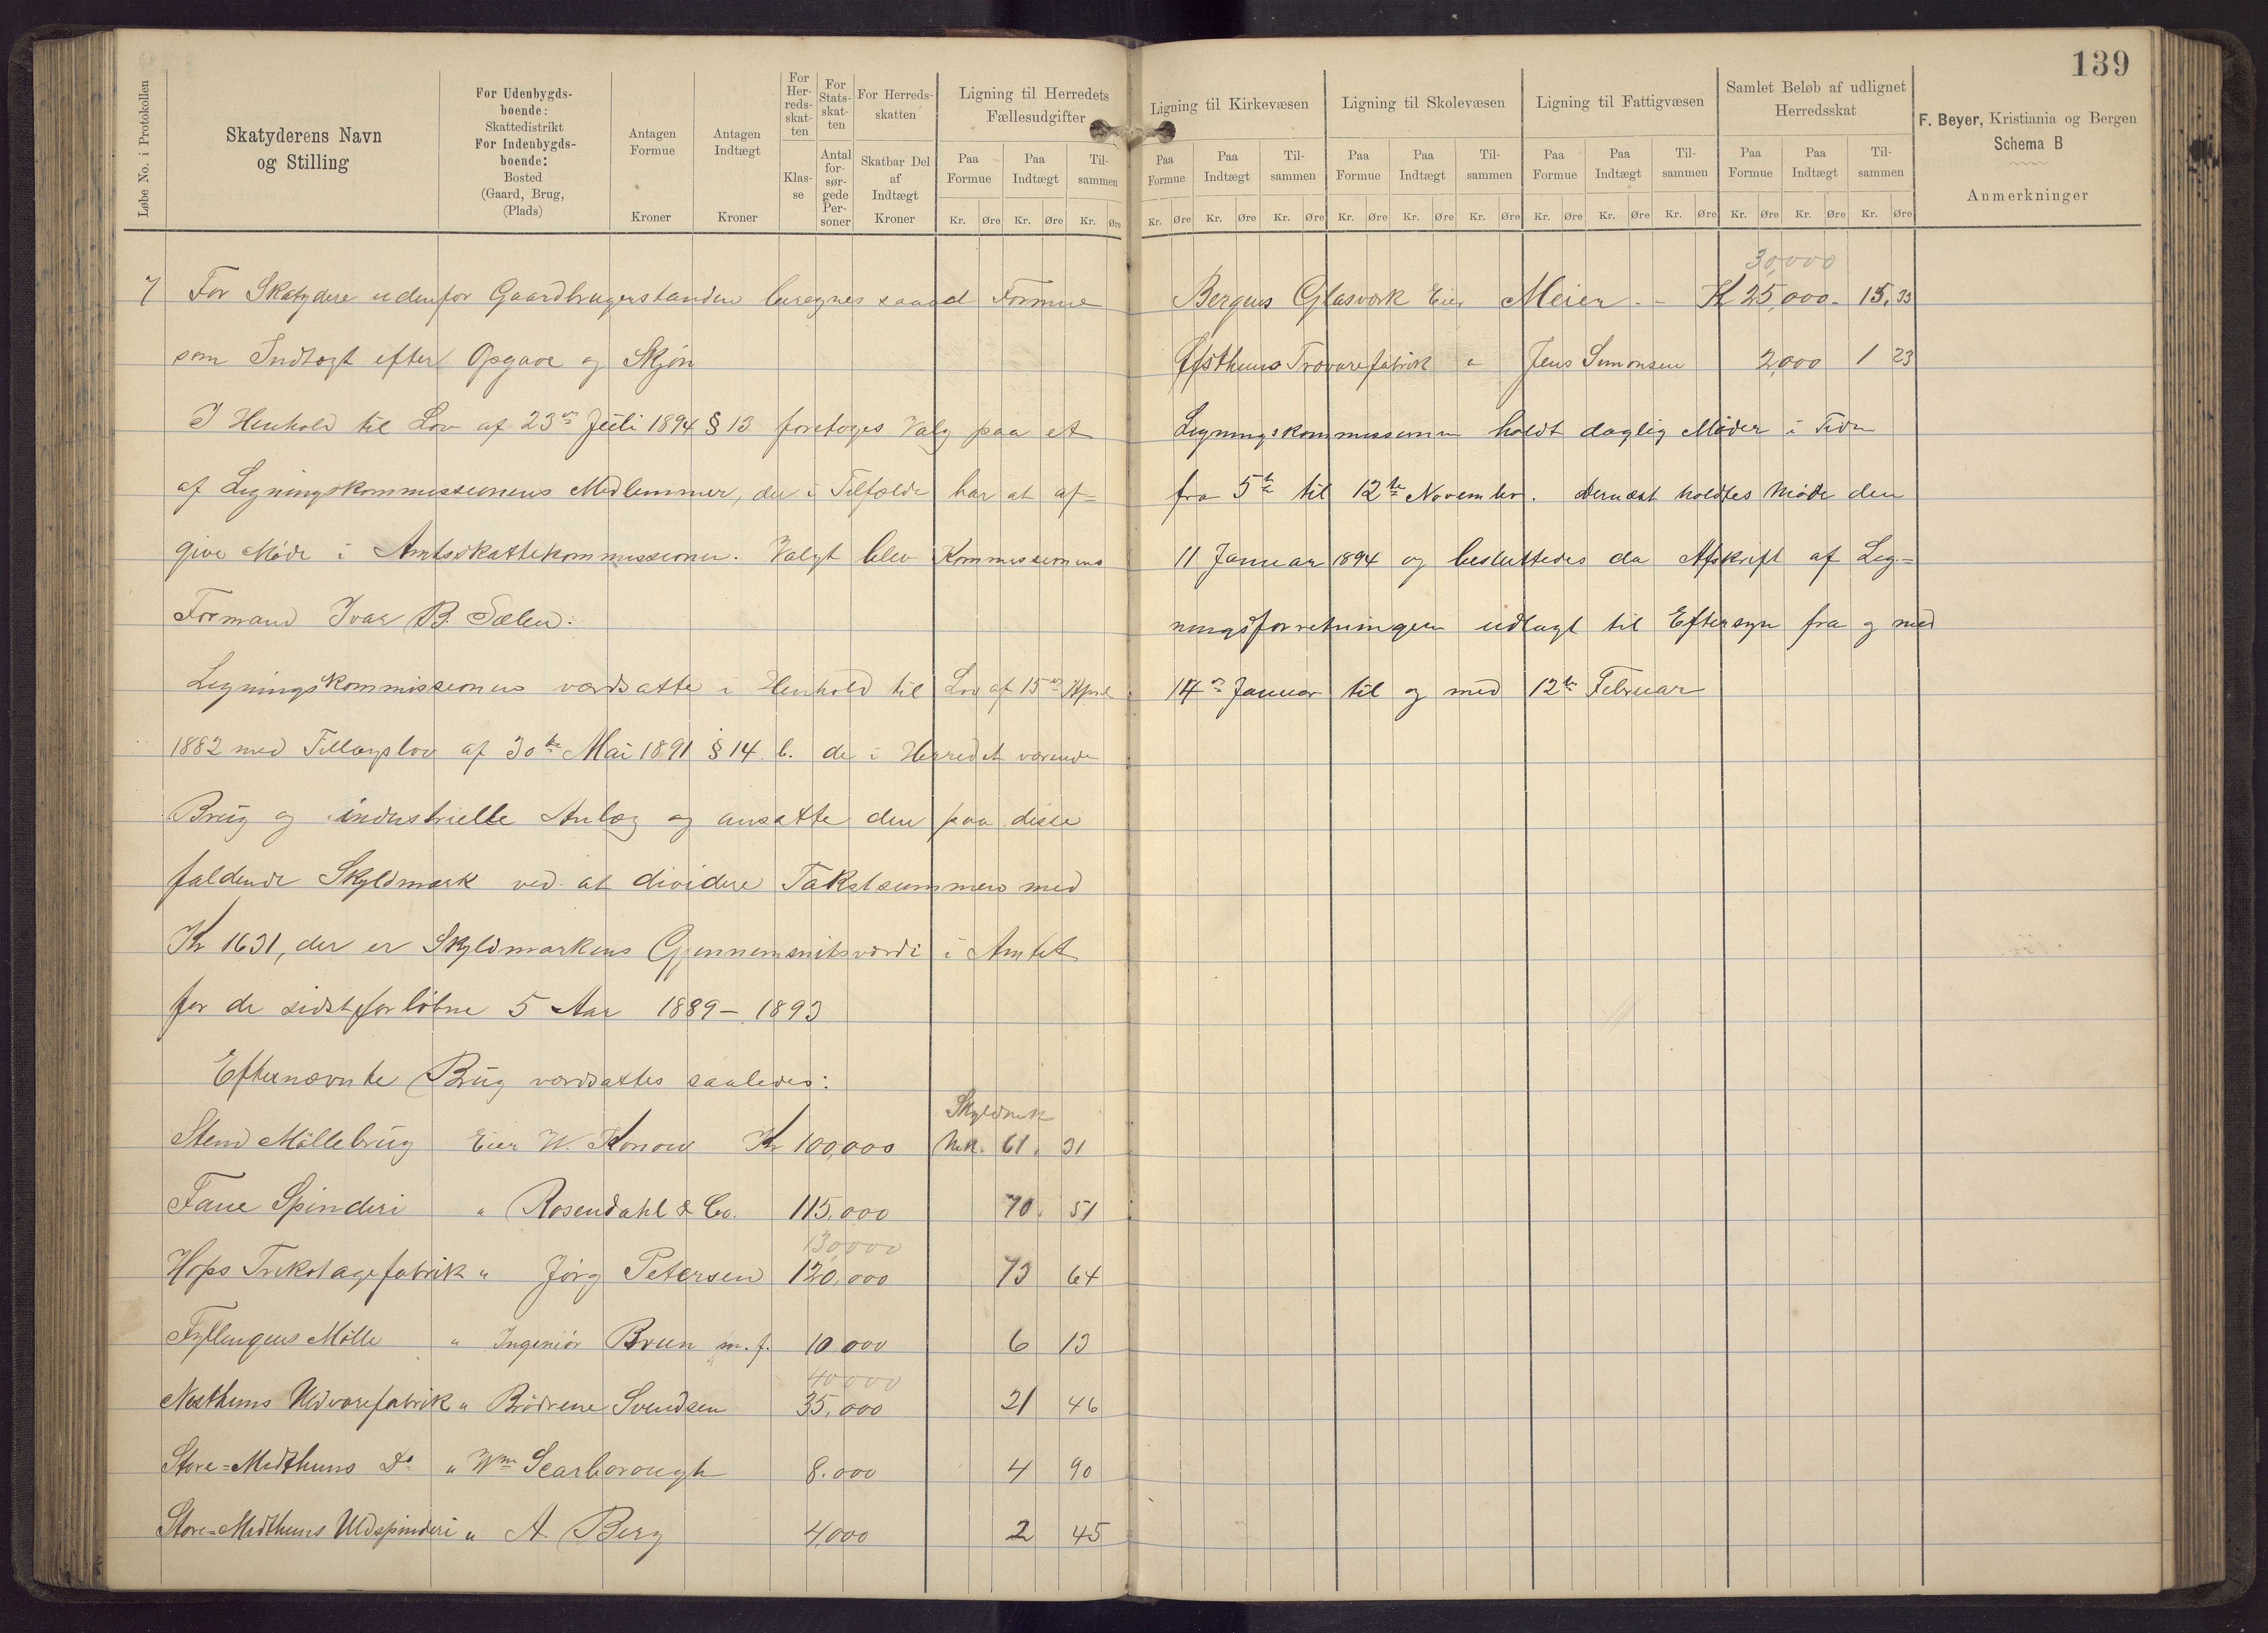 139
Løbe No. i Protokollen
Skatyderens Navn
og Stilling
For Udenbygds-
boende:
Skattedistrikt
For Indenbygds-
boende:
Bosted
(Gaard, Brug,
(Plads)
Antagen
Formue
Kroner
Antagen
Indtægt
Kroner
For
Her-
reds-
skat-
ten
Klas-
se
For
Stats-
skat-
ten
Antal
for-
sør-
gede
Per-
soner
For Herreds-
skatten
Skatbar Del
af
Indtægt
Kroner
Ligning til Herredets
Fællesudgifter
Paa
Formue
Paa
Indtægt
Til-
sammen
Kr. Øre Kr. Øre Kr. Øre
7 For Skatydere udenfor Gaardbrugerstanden beregnes saavel Formue
som Indtægt efter Opgave og Skjøn
I Henhold til Lov af 23de Juli 1894 § 13 foretoges Valg paa et
af Ligningskommissionens Medlemmer, der i Tilfælde har at af=
give Møde i Amtsskattekommissionen. Valgt blev Kommissionens
Formand Ivar B. Sælen.
Ligningskommissionen værdsatte i Henhold til Lov af 15de April
1882 med Tillægslov af 30te Mai 1891 § 14 b. de i Herredet værende
Brug og industrielle Anlæg og ansatte den paa disse
faldende Skyldmark ved at dividere Takstsummen med
Kr 1631, der er Skyldmarkens Gjennemsnitsværdi i Amtet
for de sidstforløbne 5 Aar 1889 – 1893
Efternævnte Brug værdsattes saaledes:
Skyldmk
Stend Møllebrug Eier W. Konow Kr 100,000 Mk. 61. 31
Fane Spinderi " Rosendahl & Co. 115,000 70. 51
130000
Hops Trikotagefabrik " Jørg Petersen 120,000 73 64
Fyllingens Mølle " Ingeniør Brun m. f. 10 000 6 13
40000
Nesthuns Uldvarefabrik " Brødrene Svendsen 35,000 21 46
Store=Midthuns Do " Wm Scarborough 8.000 4 90
Store=Midthuns Uldspinderi " A Berg 4,000 2 45
Ligning til Kirkevæsen
Paa
Formue
Paa
Indtægt
Til-
sammen
Kr. Øre Kr. Øre Kr. Øre
Ligning til Skolevæsen
Paa
Formue
Paa
Indtægt
Til-
sammen
Kr. Øre Kr. Øre Kr. Øre
Ligning til Fattigvæsen
Paa
Formue
Paa
Indtægt
Til-
sammen
Kr. Øre Kr. Øre Kr. Øre
Samlet Beløb af udlignet
Herredsskat
Paa
Formue
Paa
Indtægt
Til-
sammen
Kr. Øre Kr. Øre Kr. Øre
F. Beyer, Kristiania og Bergen
Schema B
Anmerkninger
30,000
Bergens Glasværk Eier Meier - - Kr 25,000 - 15, 33
Træværefabrik " Jens Simonsen 2,000 1 23
Ligningskommissionen holdt daglig Møder i Tiden
fra 5te til 12te November. Dernæst holdtes Møde den
11 Januar 1894 og besluttedes da Afskrift af Lig=
ningsforretningen udlagt til Eftersyn fra og med
14de Januar til og med 12te Februar